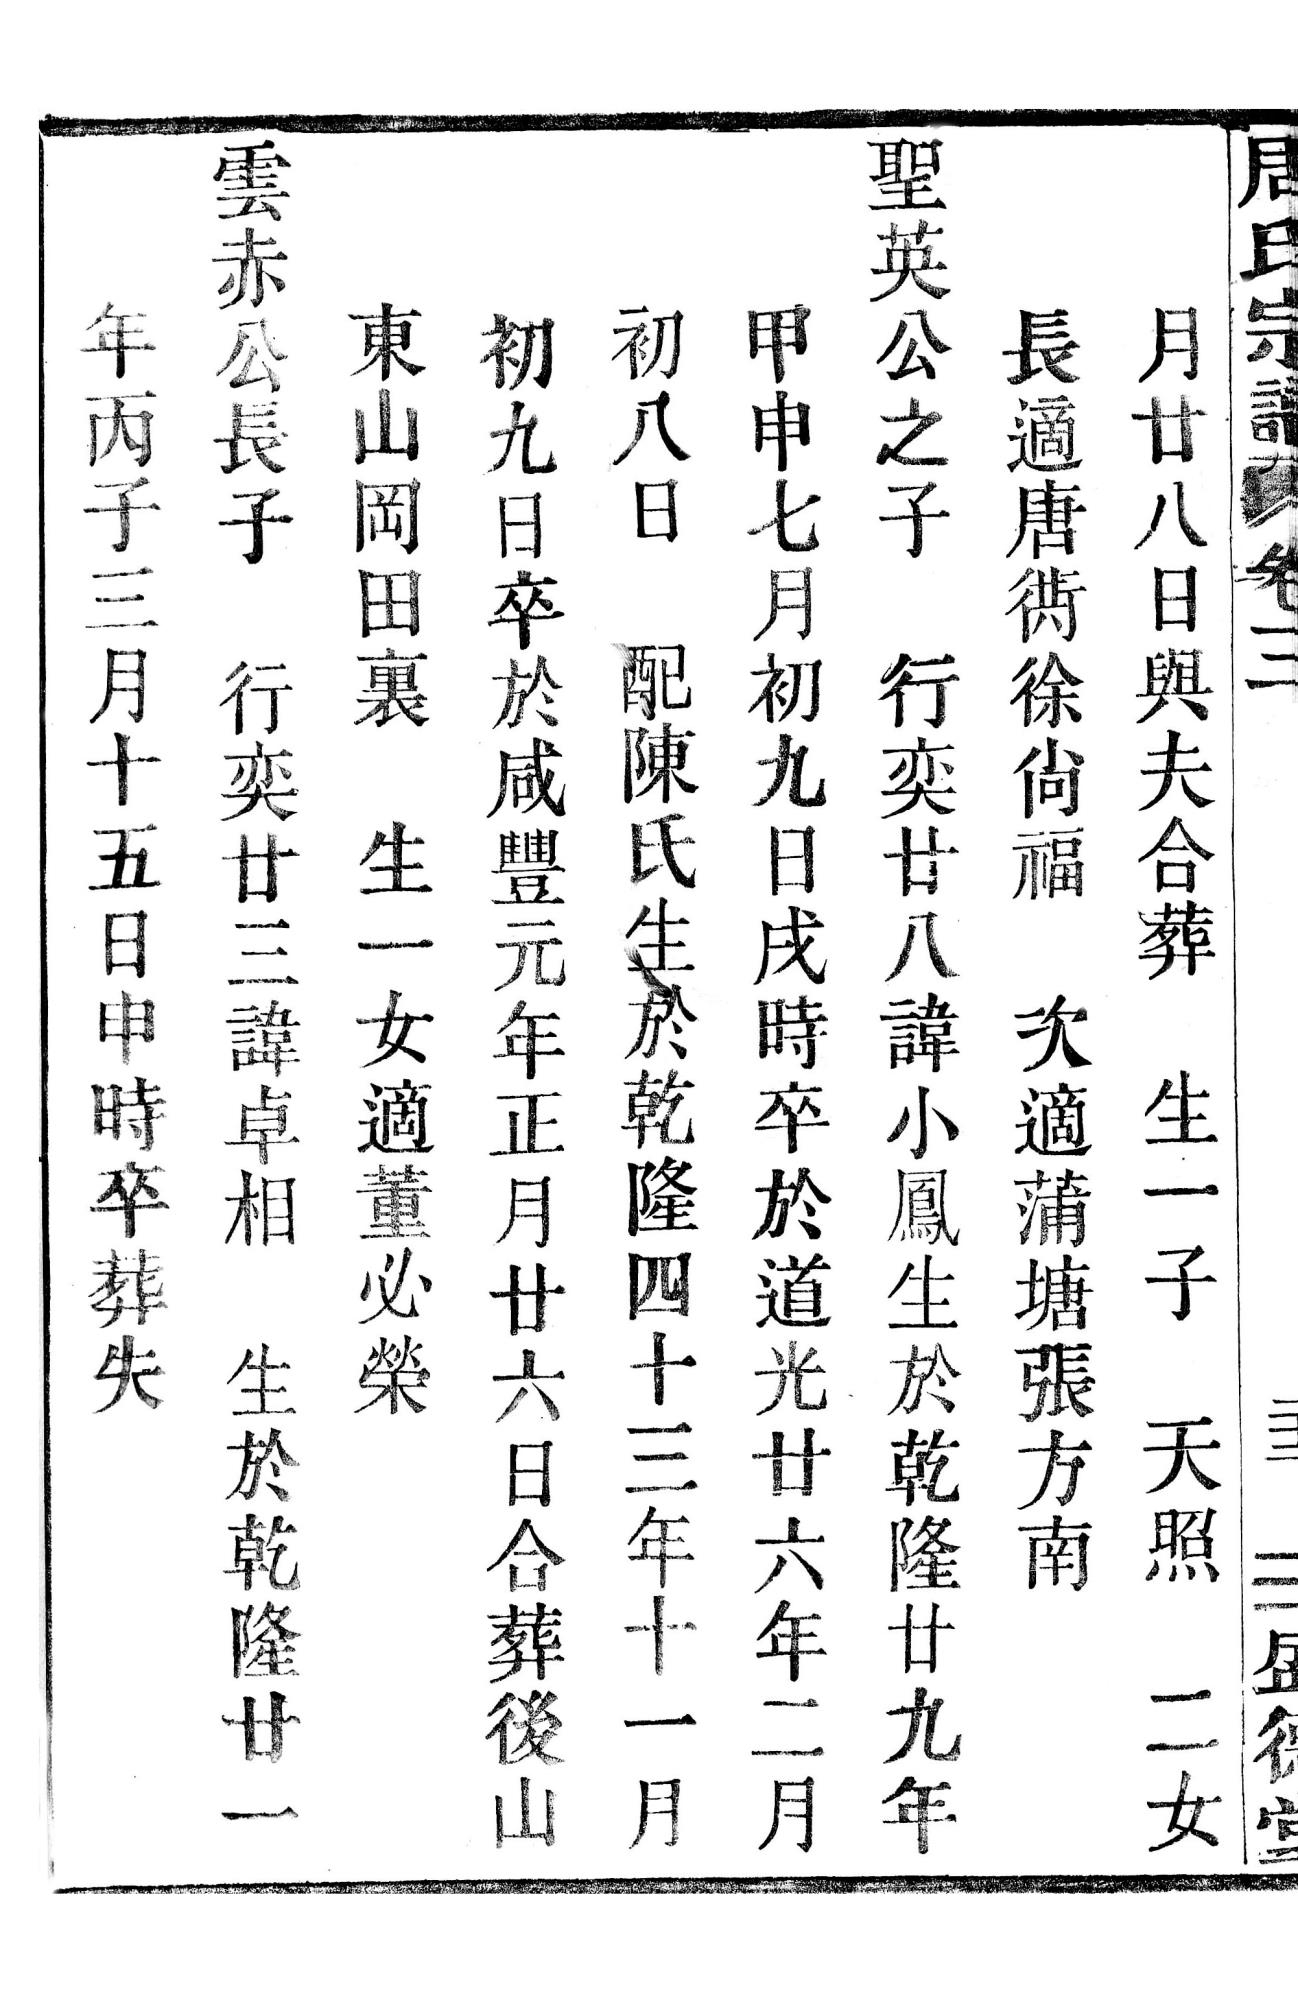 周氏宗譜 卷三 盛德堂
月廿八日與夫合葬 生一子 天照 二女
長適唐衖徐尙福 次適蒲塘張方南
聖英公之子 行奕廿八諱小鳳生於乾隆廿九年
甲申七月初九日戌時卒於道光廿六年二月
初八日 配陳氏生於乾隆四十三年十一月
初九日卒於咸豐元年正月廿六日合葬後山
東山岡田裏 生一女適董必榮
雲赤公長子 行奕廿三諱卓相 生於乾隆廿一
年丙子三月十五日申時卒葬失